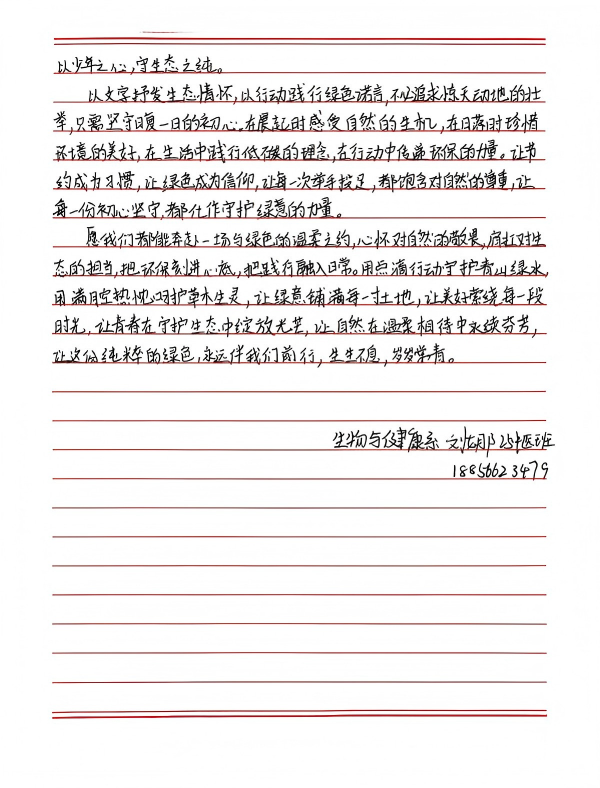 以少年之心，守生态之纯。
以文字抒发生态情怀，以行动践行绿色诺言，不必追求惊天动地的壮
举，只需坚守日复一日的初心。在晨起时感受自然的生机，在日落时珍惜
环境的美好，在生活中践行低碳的理念，在行动中传递环保的力量。让节
约成为习惯，让绿色成为信仰，让每一次举手投足，都饱含对自然的尊重，让
每一份初心坚守，都化作守护绿意的力量。
愿我们都能奔赴一场与绿色的温柔之约，心怀对自然的敬畏，肩扛对生
态的担当，把环保刻进心底，把践行融入日常。用点滴行动守护青山绿水，
用满腔热忱呵护草木生灵，让绿意铺满每一寸土地，让美好萦绕每一段
时光，让青春在守护生态中绽放光芒，让自然在温柔相待中永续芬芳，
让这份纯粹的绿色，永远伴我们前行，生生不息，岁岁常青。
生物与健康系 刘 25中医班
18856623479